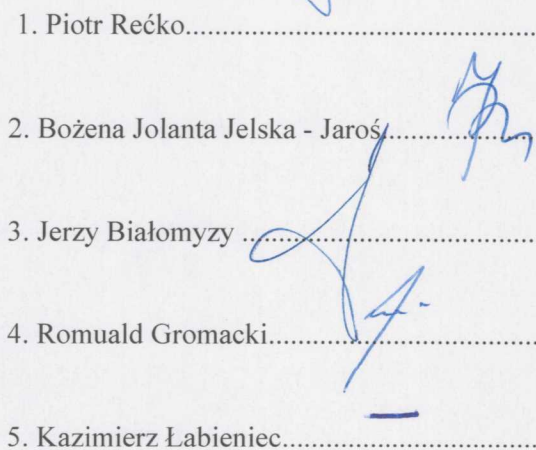 1. Piotr Rećko..............................................................
2. Bożena Jolanta Jelska - Jaroś..........................
3. Jerzy Białomyzy ................................................
4. Romuald Gromacki............................................
5. Kazimierz Łabieniec..........................................